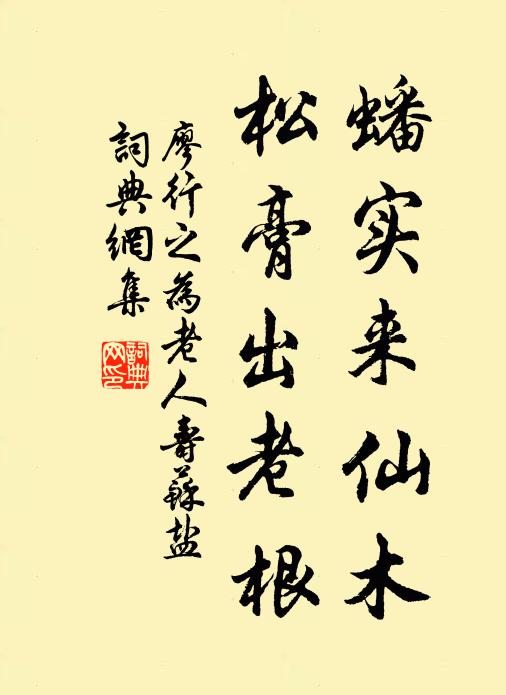 蟠实来仙木
松膏出老根
廖行之為老人壽蘇盐
詞典網集
詞典网印